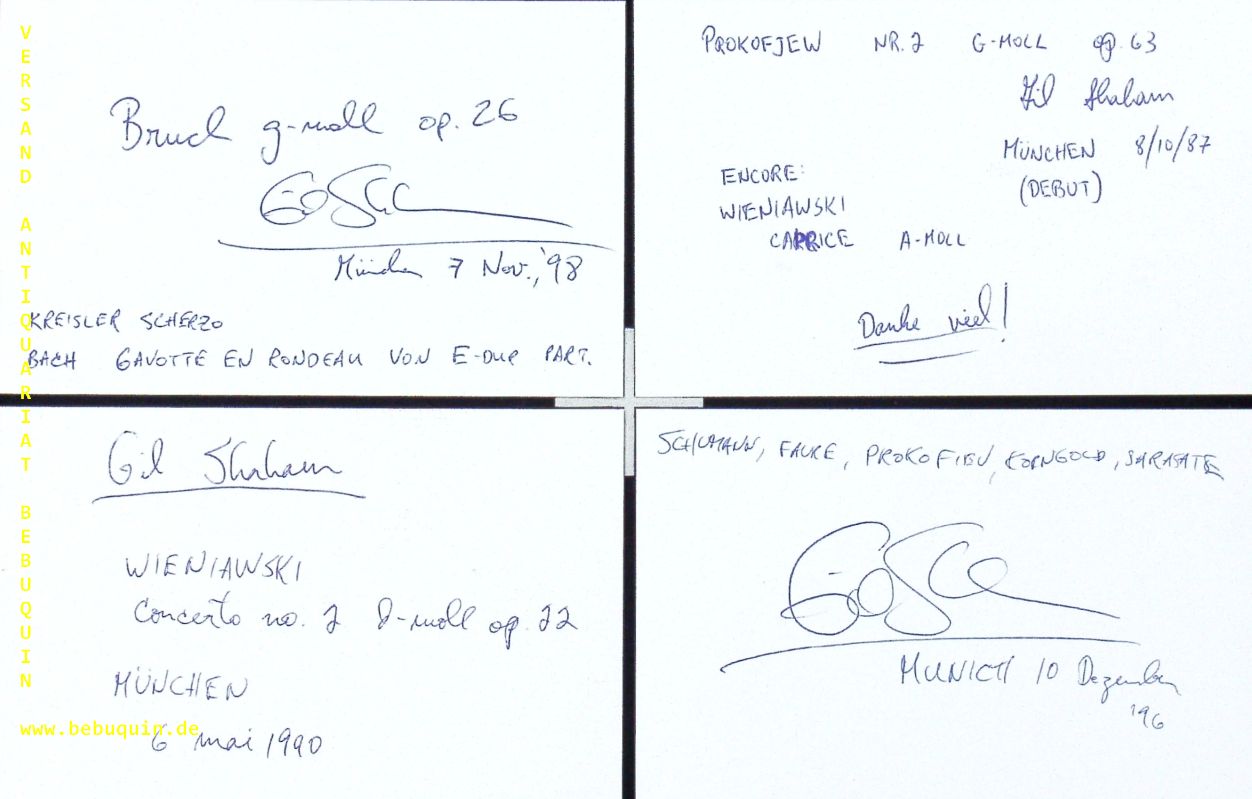 Bruch g-moll op. 26
München 7 Nov., '98
KREISLER SCHERZO
BACH GAVOTTE EN RONDEAU VON E-DUR PART.
PROKOFJEW NR. 2 G-MOLL op. 63
Gil Shaham
MÜNCHEN 8/10/87
(DEBUT)
ENCORE:
WIENIAWSKI
CAPRICE A-MOLL
Danke viel!
Gil Shaham
WIENIAWSKI
Concerto no. 2 D-moll op. 22
MÜNCHEN
6 mai 1990
SCHUMANN, FAURE, PROKOFIEV, KORNGOLD, SARASATE
MUNICH 10 Dezember
'96
VERSAND ANTIQUARIAT BEBUQUIN
www.bebuquin.de